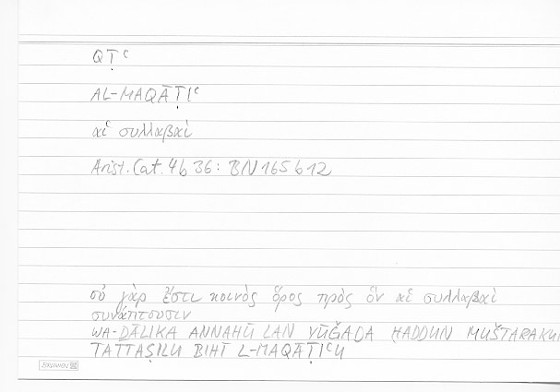 QṬʿ
AL-MAQĀṬIʿ
αἱ συλλαβαὶ
Arist. Cat. 4b 36: BN 165 b 12
οὐ γὰρ ἔστι κοινὸς ὅρος πρὸς ὃν αἱ συλλαβαὶ
συνάπτουσιν
WA-ḎĀLIKA ANNAHŪ LAN YŪǦADA ḤADDUN MUŠTARAKU
TATTAṢILU BIHĪ L-MAQĀṬIʿU